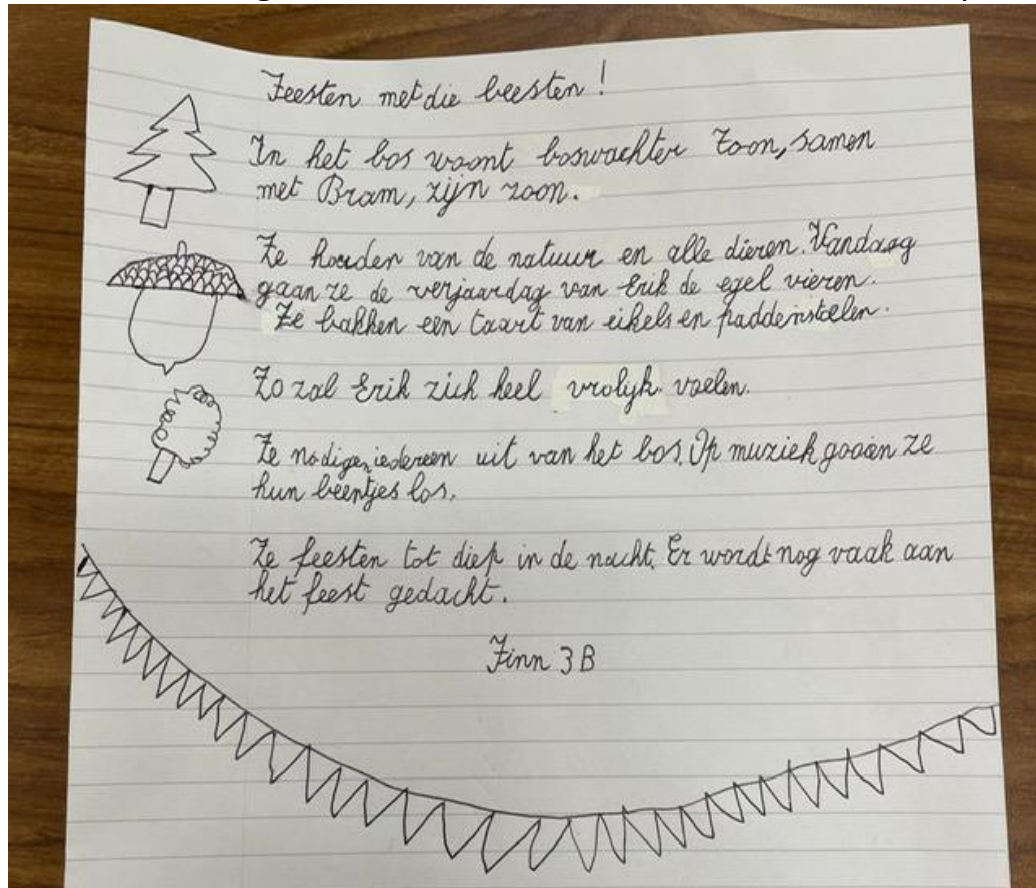 Feesten met die beesten!
In het bos woont boswachter Toon, samen
met Bram, zijn zoon.
Ze houden van de natuur en alle dieren. Vandaag
gaan ze de verjaardag van Erik de egel vieren.
Ze bakken een taart van eikels en paddenstoelen.
Zo zal Erik zich heel vrolijk voelen.
Ze nodigen iedereen uit van het bos. Op muziek gooien ze
hun beentjes los.
Ze feesten tot diep in de nacht. Er wordt nog vaak aan
het feest gedacht.
Finn 3B